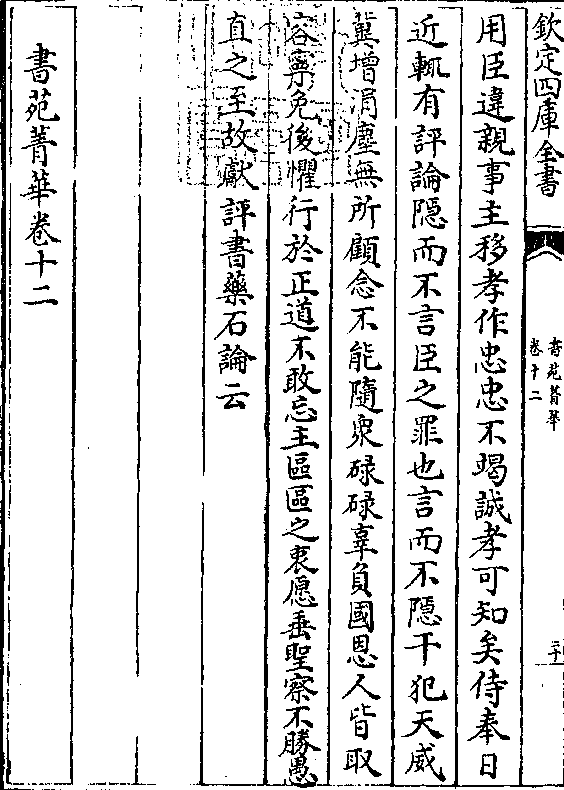 欽定四庫全書
書苑菁華
卷十二
二十
用臣違親事主移孝作忠忠不竭誠孝可知矣侍奉日
近輒有評論隠而不言臣之罪也言而不隠干犯天威
冀增涓塵無所顧念不能隨衆碌碌辜負國恩人皆取
容寧免後懼行於正道不敢忘主區區之衷愿垂聖察不勝愚
直之至故獻評書藥石論云
書苑菁華卷十二